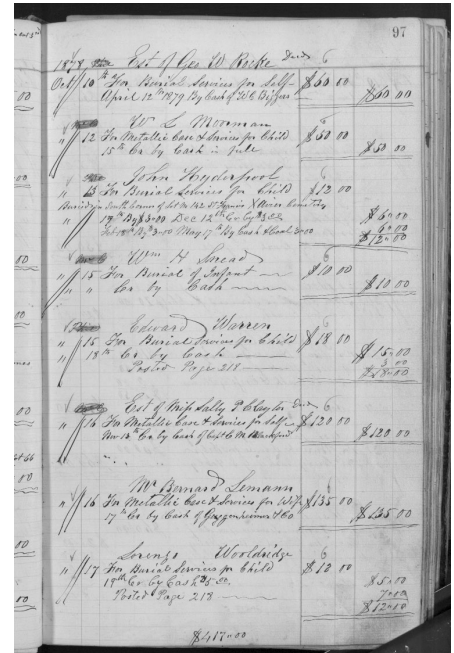 97
1878 Est of Geo W Burke Decd 6
Oct 10th For Burial Services for Self $60 00
April 12th 1879 By Cash of W C Biggers $60 00
W L Moorman
" 12 For Metallic Case & Services for Child $50 00
15th Cr by Cash in full $50 00
John Hyderpool
" 13 For Burial Services for Child $12 00
Buried in South Corner of Lot No 142 St Xavier Cemetery
19th By $3=00 Dec 12th Cr by $3 00 $6=00
18th By $3=00 May 17th By Cash & Coal 3=00 6=00
$12=00
Wm H Snead
" 15 For Burial of Infant $10 00
" " Cr by Cash $10 00
Edward Warren
" 15 For Burial Services for Child $18 00
18th Cr by Cash $15=00
Posted Page 218 3 00
$18=00
Est of Miss Sally P Claytor Decd 6
" 16 For Metallic Case & Services for Self $120 00
Nov 15th Cr by Cash of Capt C M Blackford $120 00
Mr Bernard Lemann
" 16 For Metallic Case & Services for Wife $135 00
17th Cr by Cash of Guggenheimer & Co $135 00
Lorenzo Wooldridge
" 17 For Burial Services for Child $12 00
19th Cr by Cash $5 00 $5=00
Posted Page 218 7=00
$12=00
$417=00